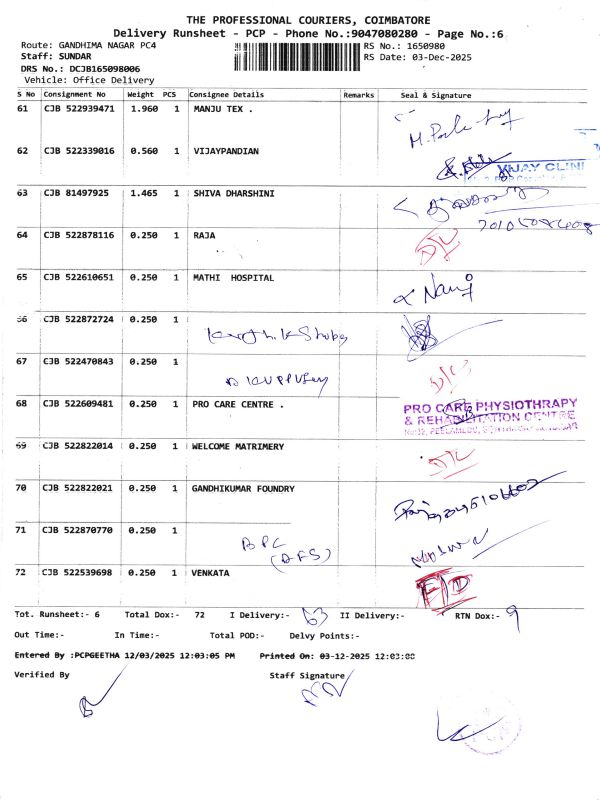 THE PROFESSIONAL COURIERS, COIMBATORE
Delivery Runsheet - PCP - Phone No.:9047080280 - Page No.:6
Route: GANDHIMA NAGAR PC4 RS No.: 1650980
Staff: SUNDAR RS Date: 03-Dec-2025
DRS No.: DCJB165098006
Vehicle: Office Delivery
S No Consignment No Weight PCS Consignee Details Remarks Seal & Signature
61 CJB 522939471 1.960 1 MANJU TEX .
62 CJB 522339016 0.560 1 VIJAYPANDIAN
VIJAY CLINI
63 CJB 81497925 1.465 1 SHIVA DHARSHINI
64 CJB 522878116 0.250 1 RAJA
D/L
65 CJB 522610651 0.250 1 MATHI HOSPITAL
66 CJB 522872724 0.250 1
67 CJB 522470843 0.250 1
D/L
68 CJB 522609481 0.250 1 PRO CARE CENTRE .
PRO CARE PHYSIOTHRAPY
& REHABILITATION CENTRE
69 CJB 522822014 0.250 1 WELCOME MATRIMERY
D/L
70 CJB 522822021 0.250 1 GANDHIKUMAR FOUNDRY
71 CJB 522870770 0.250 1
BPC
72 CJB 522539698 0.250 1 VENKATA
F/D
Tot. Runsheet:- 6 Total Dox:- 72 I Delivery:- 63 II Delivery:- RTN Dox:- 9
Out Time:- In Time:- Total POD:- Delvy Points:-
Entered By :PCPGEETHA 12/03/2025 12:03:05 PM Printed On: 03-12-2025 12:03:08
Verified By Staff Signature